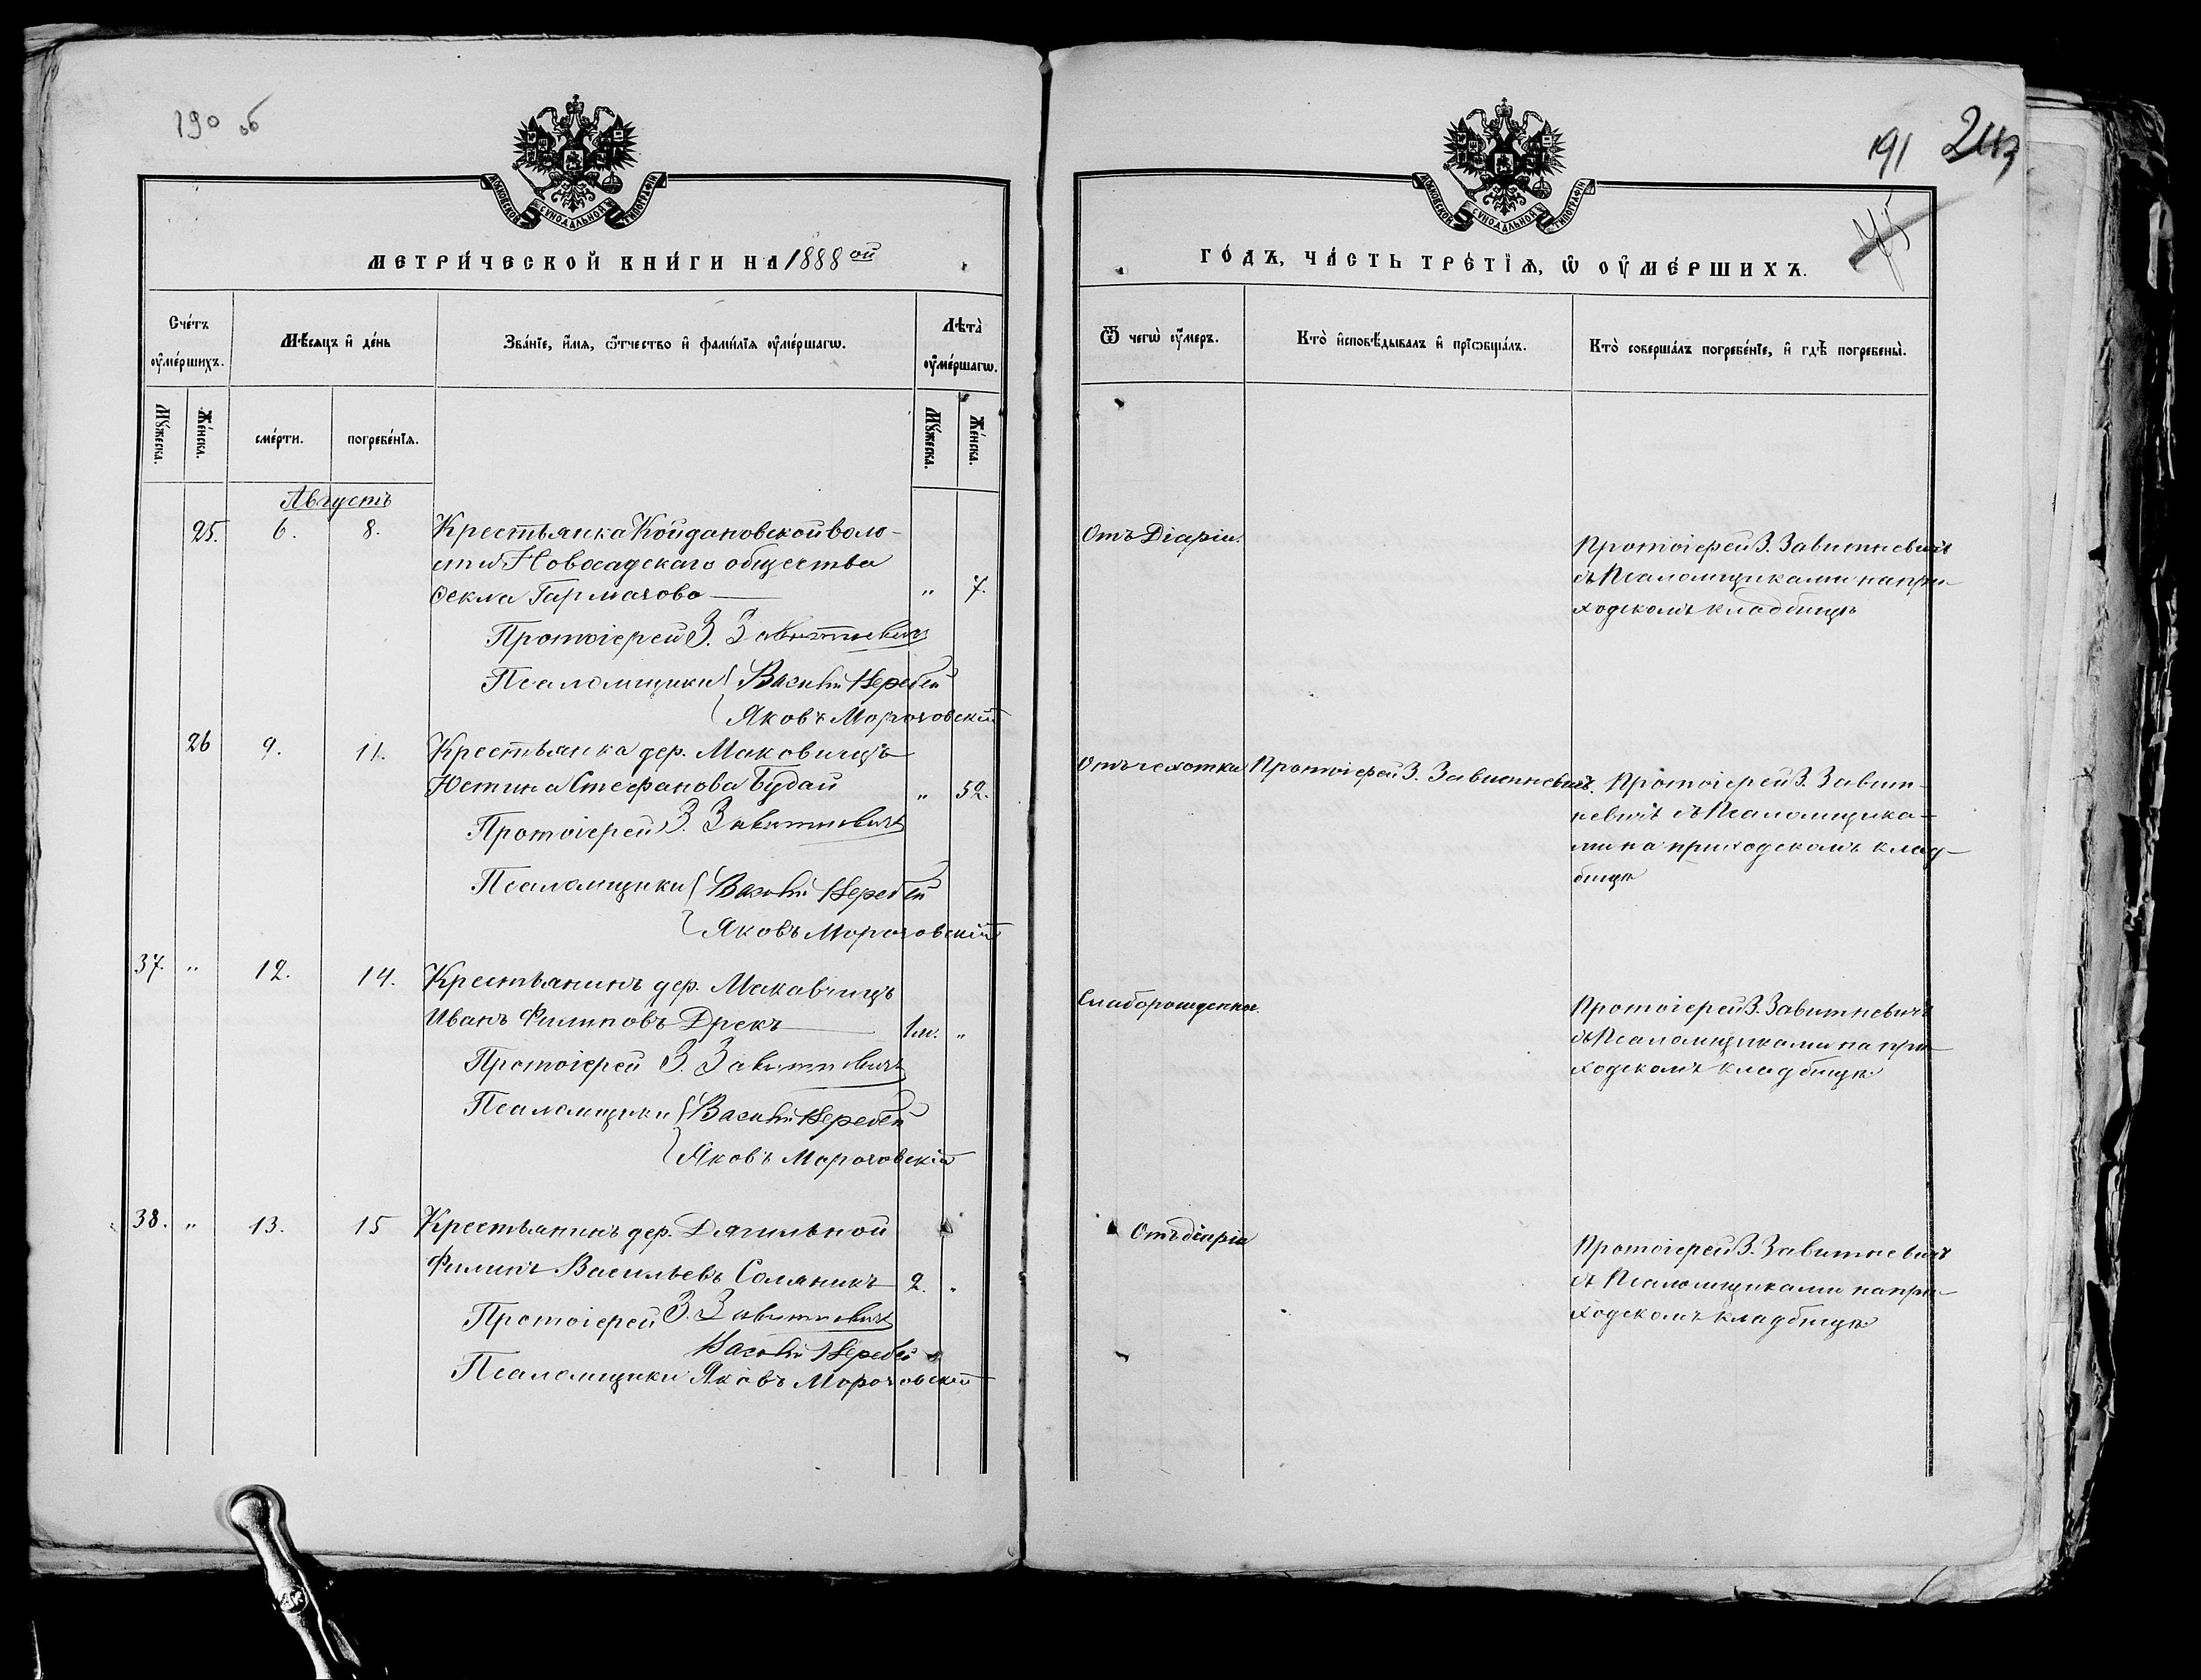 190 об
МОСКОВСКОЙ СУНОДАЛЬНОЙ ТИПОГРАФІИ
МЕТРИ́ЧЕСКОЙ КНИ́ГИ НА 1888 ой
Сче́тъ оу҆ме́ршихъ.
Мѣ́сяцъ и҆ де́нь
Зва́нїе, и҆́мя, ѻ҆́тчество и҆ фами́лїя оу҆ме́ршагѡ.
Лѣта̀ оу҆ме́ршагѡ.
Мꙋ́жеска.
Же́нска.
сме́рти.
погребе́нїя.
Мꙋ́жеска.
Же́нска.
Августъ
25. 6. 8. Крестьянка Койдановской воло-
сти Новосадскаго общества
Ѳекла Гармазово „ 7.
Протоіерей З. Завитневичъ
Псаломщики Василій Неребей
Яковъ Мороховскій
26 9. 11. Крестьянка дер. Маковичцъ
Юстина Стефанова Будай „ 52.
Протоіерей З. Завитневичъ
Псаломщики Василій Неребей
Яковъ Мороховскій
37. „ 12. 14. Крестьянинъ дер. Макавчицъ
Иванъ Филиповъ Дрекъ 1 м. „
Протоіерей З. Завитневичъ
Псаломщики Василій Неребей
Яковъ Мороховскій
38. „ 13. 15 Крестьянинъ дер. Дягильной
Филипъ Васильевъ Соляникъ 2. „
Протоіерей З. Завитневичъ
Василій Неребей
Псаломщики Яковъ Мороховскій
191
МОСКОВСКОЙ СУНОДАЛЬНОЙ ТИПОГРАФІИ
ГО́ДЪ, ЧА́СТЬ ТРЕ́ТЇѦ, Ѡ҆ ОУ҆МЕ́РШИХЪ.
Ѿ чегѡ̀ оу҆́меръ.
Кто̀ и҆сповѣ́дывалъ и҆ прїѡбща́лъ.
Кто̀ соверша́лъ погребе́нїе, и҆ гдѣ̀ погребены̀.
Отъ Діаріи.
Протоіерей З. Завитневичъ
съ Псаломщиками на при-
ходскомъ кладбищѣ
Отъ чехотки Протоіерей З. Завитневичъ. Протоіерей З. Завит-
невичъ съ Псаломщика-
ми на приходскомъ клад-
бищѣ
Слаборожденна.
Протоіерей З. Завитневичъ
съ Псаломщиками на при-
ходскомъ кладбищѣ
Отъ діаріи
Протоіерей З. Завитневичъ
съ Псаломщиками на при-
ходскомъ кладбищѣ